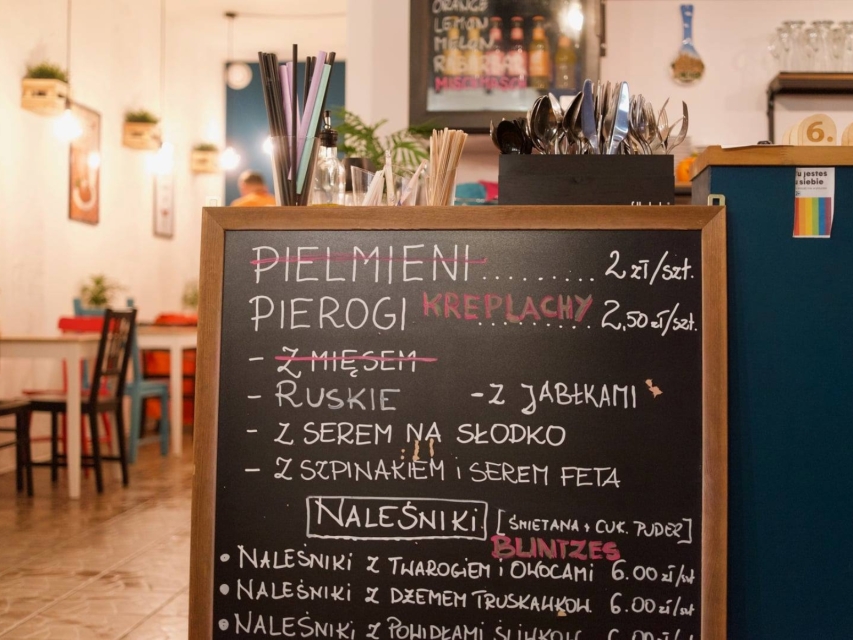 ORANGE
LEMON
MELON
6.
Tu jesteś
u siebie
PIELMIENI.......... 2 zł/szt.
PIEROGI KREPLACHY ......... 2,50 zł/szt.
- Z MIĘSEM
- RUSKIE - Z JABŁKAMI
- Z SEREM NA SŁODKO
- Z SZPINAKIEM i SEREM FETA
NALEŚNIKI [ŚMIETANA + CUK. PUDER]
BLINTZES
• NALEŚNIKI Z TWAROGIEM i OWOCAMI 6.00 zł/szt
• NALEŚNIKI Z DŻEMEM TRUSKAWKOW. 6.00 zł/szt
• NALEŚNIKI Z POWIDŁAMI ŚLIWKOW. 6.00